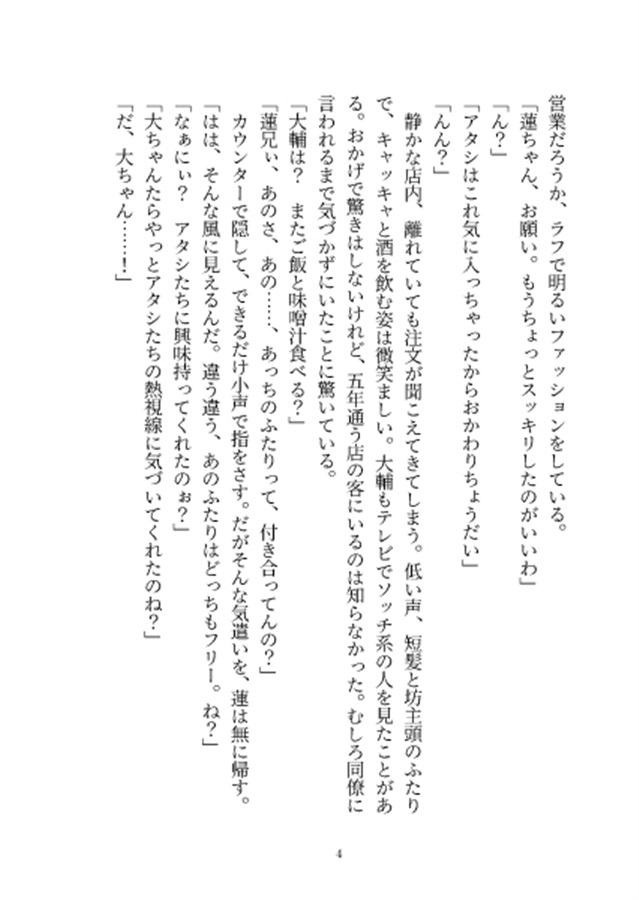 営業だろうか、ラフで明るいファッションをしている。
「蓮ちゃん、お願い。もうちょっとスッキリしたのがいいわ」
「ん？」
「アタシはこれ気に入っちゃったからおかわりちょうだい」
「んん？」
　静かな店内、離れていても注文が聞こえてきてしまう。低い声、短髪と坊主頭のふたり
で、キャッキャと酒を飲む姿は微笑ましい。大輔もテレビでソッチ系の人を見たことがあ
る。おかげで驚きはしないけれど、五年通う店の客にいるのは知らなかった。むしろ同僚に
言われるまで気づかずにいたことに驚いている。
「大輔は？　またご飯と味噌汁食べる？」
「蓮兄ぃ、あのさ、あの……、あっちのふたりって、付き合ってんの？」
　カウンターで隠して、できるだけ小声で指をさす。だがそんな気遣いを、蓮は無に帰す。
「はは、そんな風に見えるんだ。違う違う、あのふたりはどっちもフリー。ね？」
「なぁにぃ？　アタシたちに興味持ってくれたのぉ？」
「大ちゃんたらやっとアタシたちの熱視線に気づいてくれたのね？」
「だ、大ちゃん……！」
4